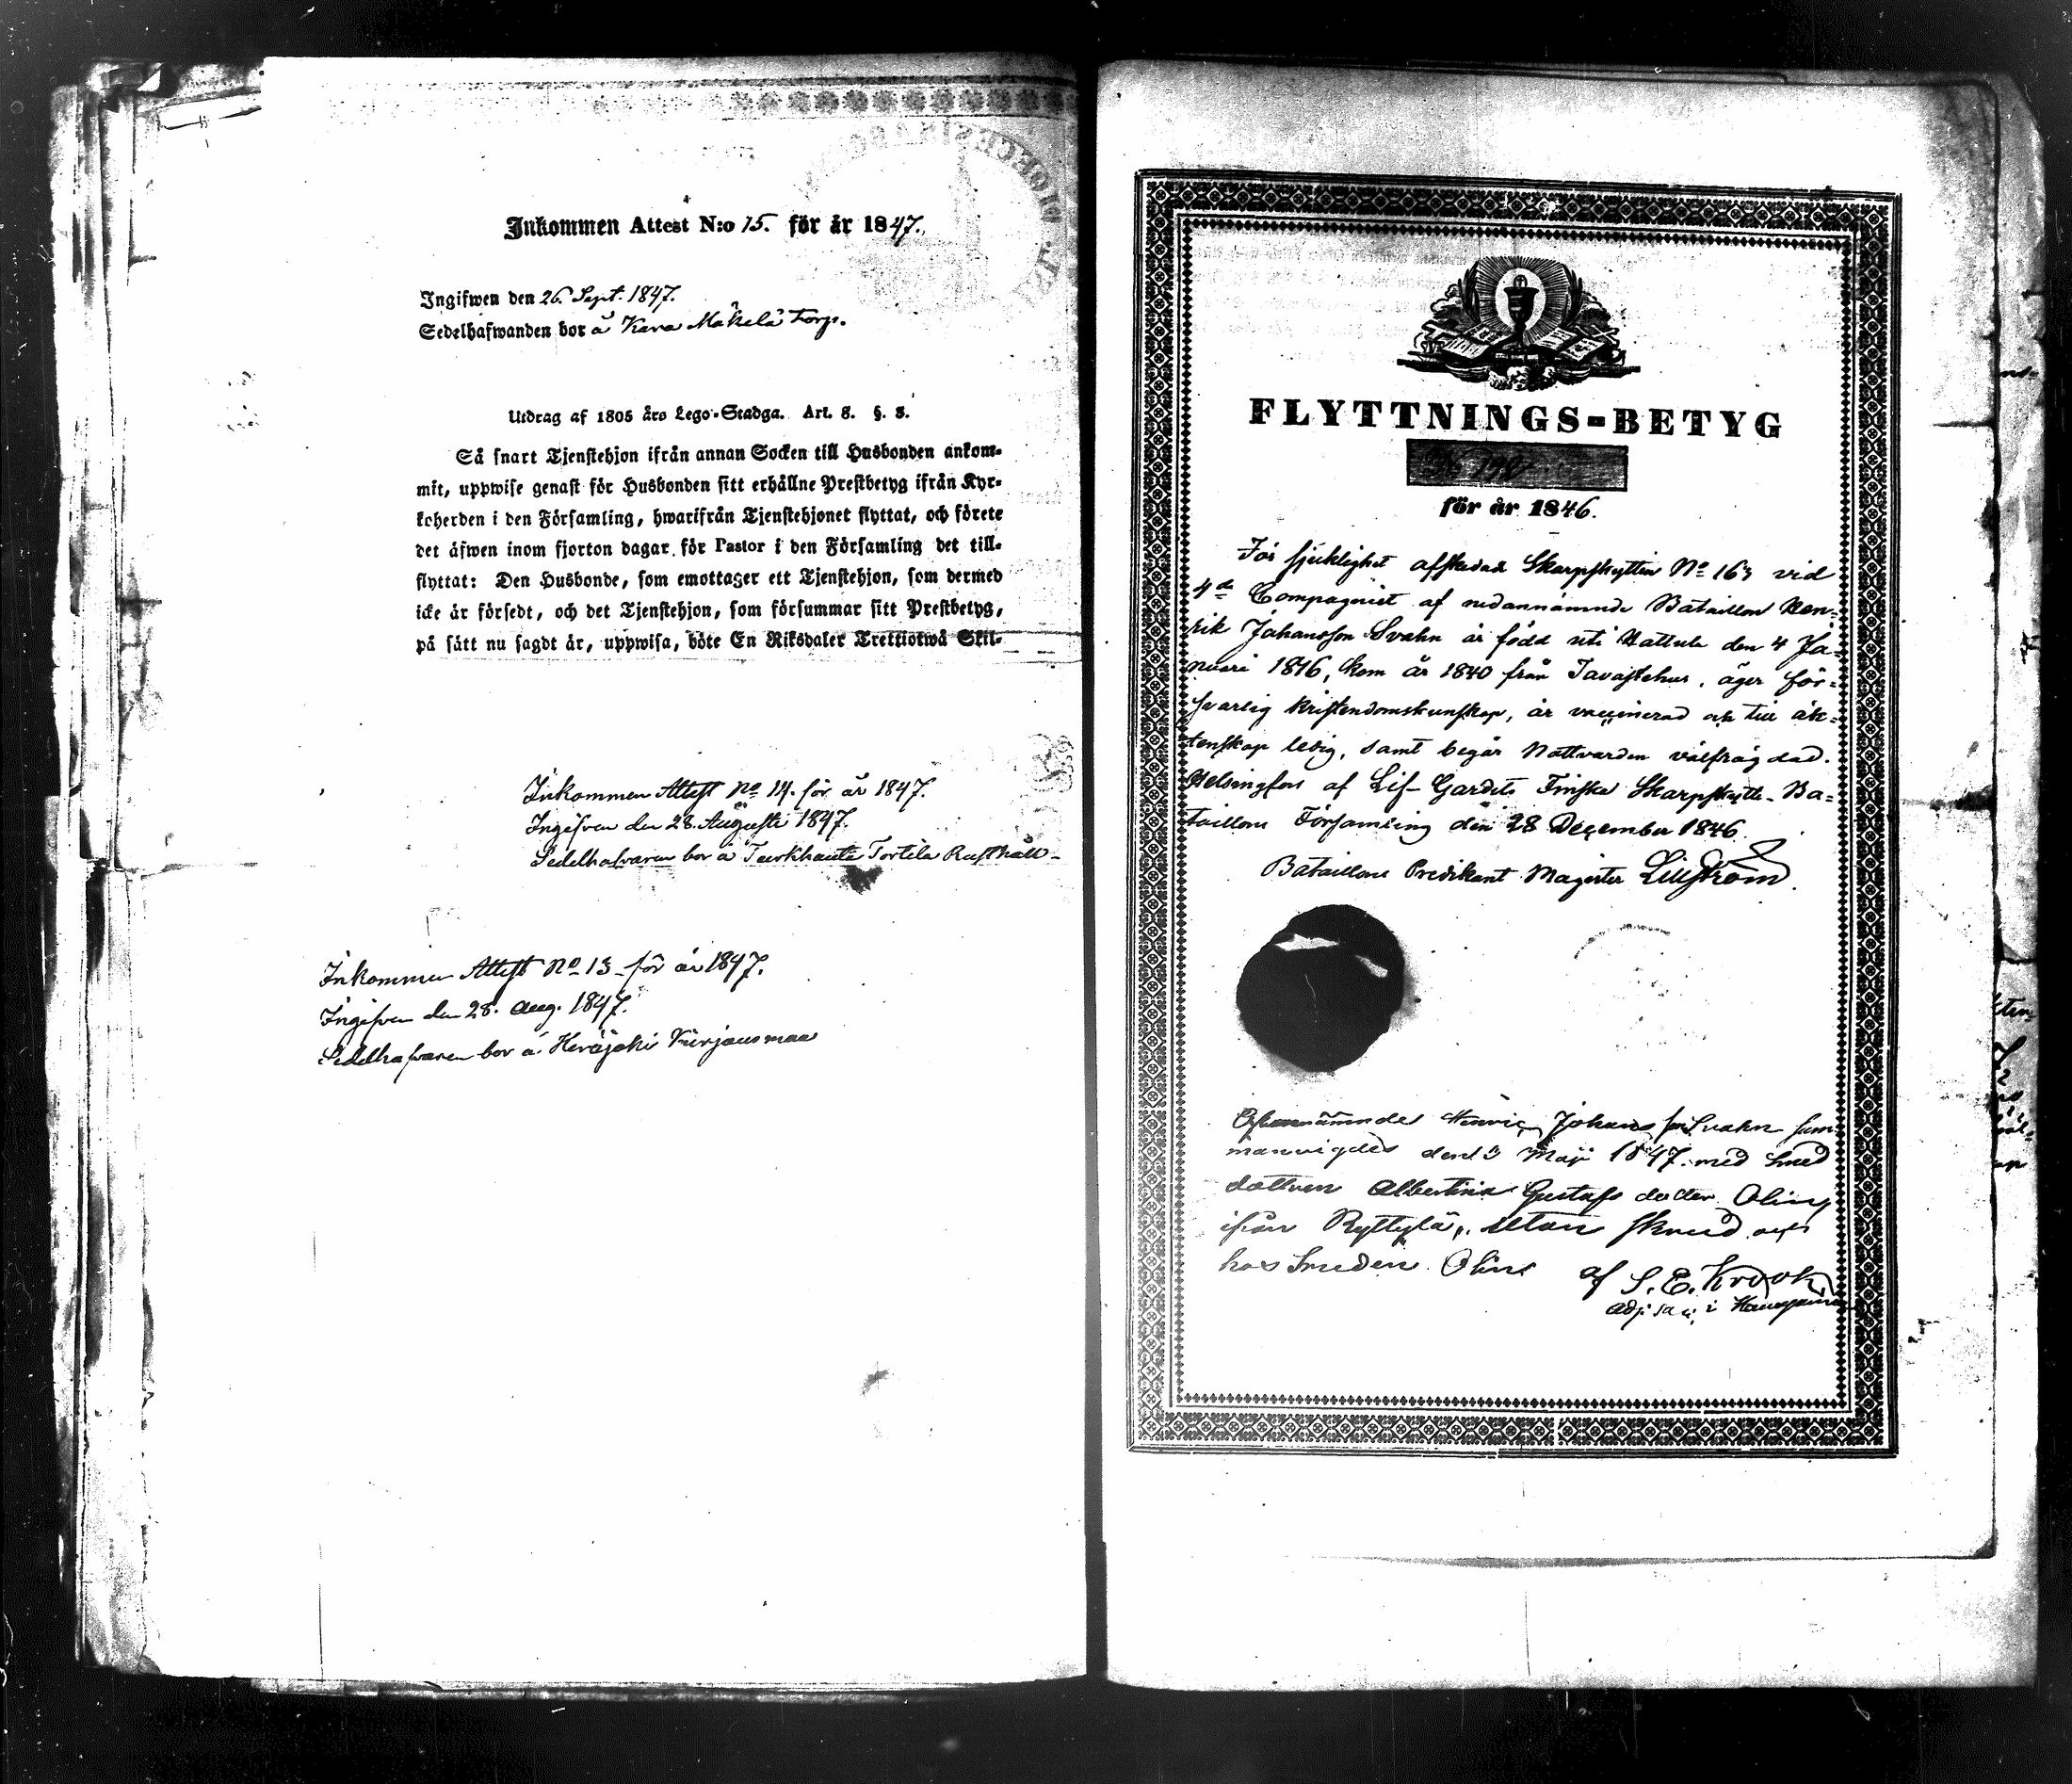 Inkommen Attest N:o 15. för år 1847.
Ingifwen den 26. Sept. 1847.
Sedelhafwanden bor å Kara Mäkelä torp.
Utdrag af 1805 års Lego-Stadga. Art. 8. §. 3.
Så snart Tjenstehjon ifrån annan Socken till Husbonden ankom-
mit, uppwise genast för Husbonden sitt erhållne Prestbetyg ifrån Kyr-
koherden i den Församling, hwarifrån Tjenstehjonet flyttat, och förete
det äfwen inom fjorton dagar för Pastor i den Församling det till-
flyttat: Den Husbonde, som emottager ett Tjenstehjon, som dermed
icke är försedt, och det Tjenstehjon, som försummar sitt Prestbetyg,
på sätt nu sagdt är, uppwisa, böte En Riksdaler Trettiotwå Skil-
Inkommen Attest No 14. för år 1847.
Ingifven den 28. Augusti 1847.
Sedelhafvaren bor å Turkhauta Tortila Rusthåll
Inkommen Attest No 13 för år 1847.
Ingifven den 28. Aug. 1847.
Sedelhafvaren bor å Heräjoki Kurjausmaa
FLYTTNINGS-BETYG
för år 1846.
För sjuklighet afskedade Skarpskytten No 163 vid
4de Compagniet af nedannämnde Bataillon Hen-
rik Johansson Svahn är född uti Hattula den 4 Ja-
nuari 1816, kom år 1840 från Tavastehus, äger för-
svarlig kristendomskunskap, är vaccinerad och till äk-
tenskap ledig, samt begår Nattvarden välfrägdad.
Helsingfors af Lif-Gardets Finska Skarpskytte-Ba-
taillons Församling den 28 December 1846.
Bataillons Predikant Magister Lillström.
Ofvannämnder Henric Johansson Svahn sam
manvigdes den Maji 1847 med Smed
dottren Albertina Gustafs dotter Olin
ifrån Ryttylä, utan skrud och
hos Smeden Olin af S. E. Krook
Adj. i